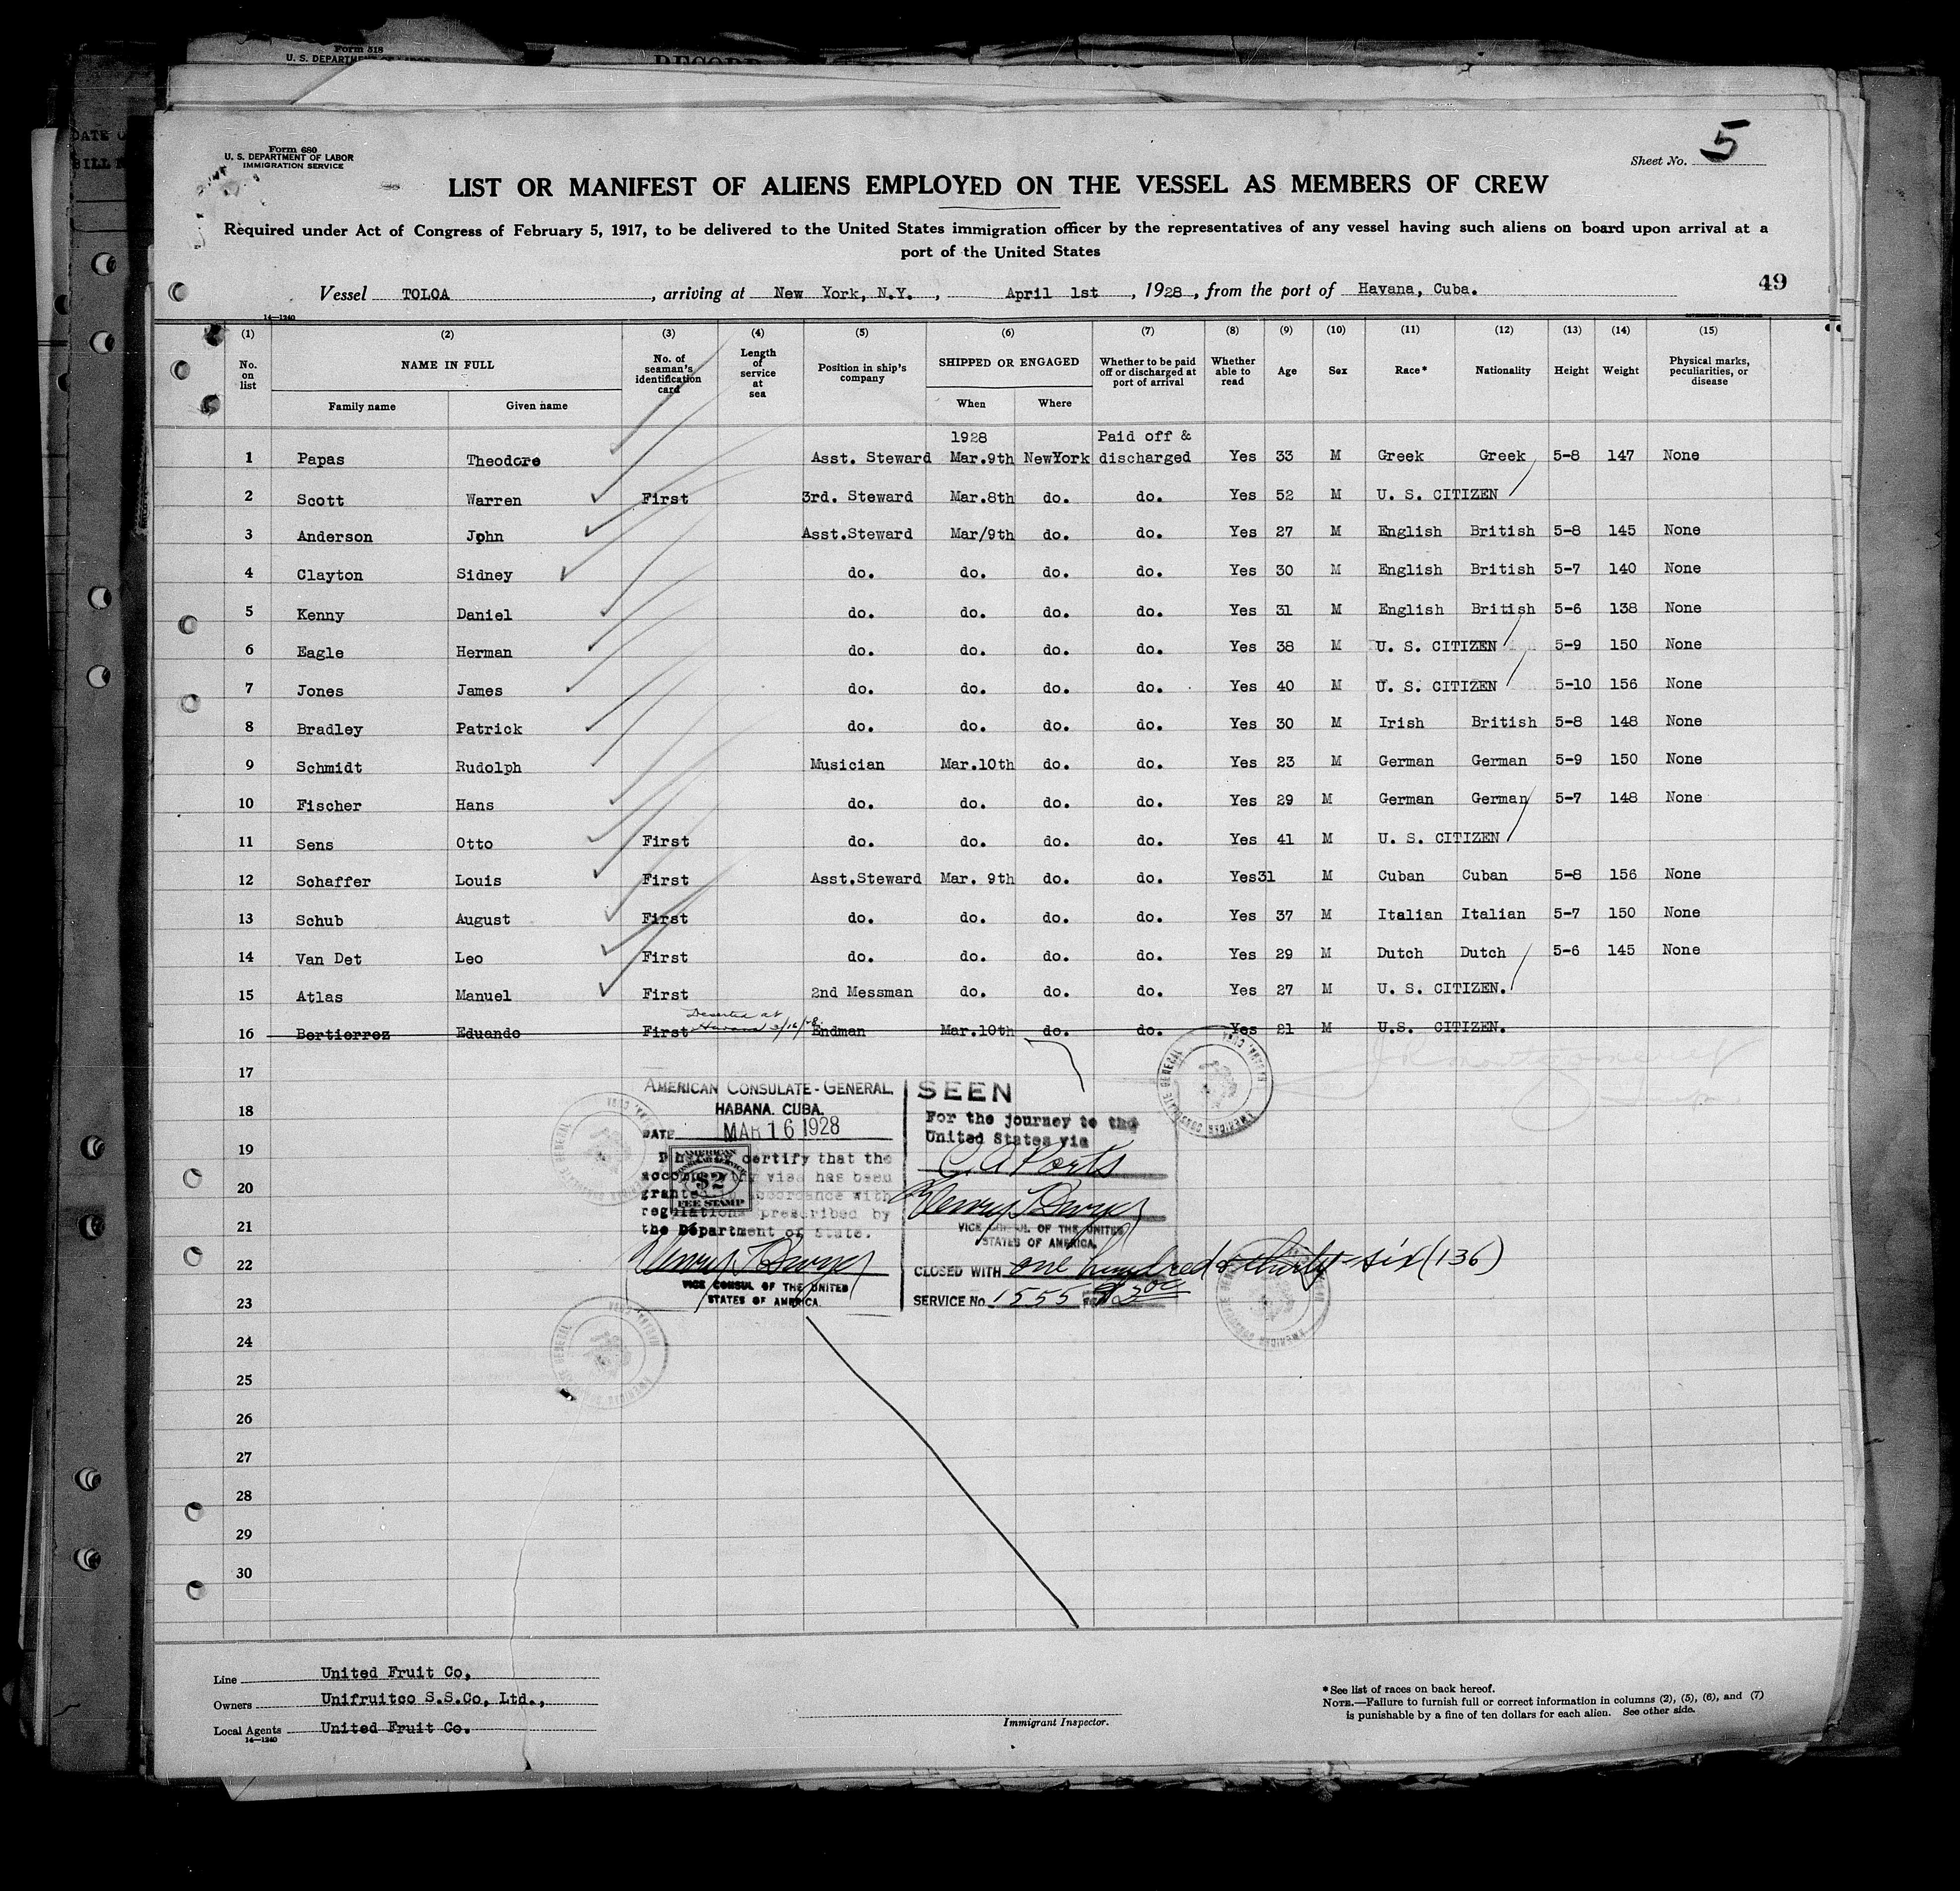 Form 518
U. S. DEPARTMENT OF LABOR
RECORD
DATE O
BILL
Form 680
U. S. DEPARTMENT OF LABOR
IMMIGRATION SERVICE
Sheet No. 5
LIST OR MANIFEST OF ALIENS EMPLOYED ON THE VESSEL AS MEMBERS OF CREW
Required under Act of Congress of February 5, 1917, to be delivered to the United States immigration officer by the representatives of any vessel having such aliens on board upon arrival at a
port of the United States
Vessel TOLOA, arriving at New York, N.Y., April 1st, 1928, from the port of Havana, Cuba.
49
14—1240
(1) (2) (3) (4) (5) (6) (7) (8) (9) (10) (11) (12) (13) (14) (15)
No. on list NAME IN FULL No. of seaman's identification card Length of service at sea Position in ship's company SHIPPED OR ENGAGED Whether to be paid off or discharged at port of arrival Whether able to read Age Sex Race* Nationality Height Weight Physical marks, peculiarities, or disease
Family name Given name When Where
1928 Paid off &
1 Papas Theodore Asst. Steward Mar.9th NewYork discharged Yes 33 M Greek Greek 5-8 147 None
2 Scott Warren First 3rd. Steward Mar.8th do. do. Yes 52 M U. S. CITIZEN
3 Anderson John Asst.Steward Mar/9th do. do. Yes 27 M English British 5-8 145 None
4 Clayton Sidney do. do. do. do. Yes 30 M English British 5-7 140 None
5 Kenny Daniel do. do. do. do. Yes 31 M English British 5-6 138 None
6 Eagle Herman do. do. do. do. Yes 38 M U. S. CITIZEN 5-9 150 None
7 Jones James do. do. do. do. Yes 40 M U. S. CITIZEN 5-10 156 None
8 Bradley Patrick do. do. do. do. Yes 30 M Irish British 5-8 148 None
9 Schmidt Rudolph Musician Mar.10th do. do. Yes 23 M German German 5-9 150 None
10 Fischer Hans do. do. do. do. Yes 29 M German German 5-7 148 None
11 Sens Otto First do. do. do. do. Yes 41 M U. S. CITIZEN
12 Schaffer Louis First Asst.Steward Mar. 9th do. do. Yes31 M Cuban Cuban 5-8 156 None
13 Schub August First do. do. do. do. Yes 37 M Italian Italian 5-7 150 None
14 Van Det Leo First do. do. do. do. Yes 29 M Dutch Dutch 5-6 145 None
15 Atlas Manuel First 2nd Messman do. do. do. Yes 27 M U. S. CITIZEN.
Deserted at
Havana 3/16/28.
16 Bertierrez Eduando First Endman Mar.10th do. do. Yes 21 M U.S. CITIZEN.
17
18
19
20
21
22
23
24
25
26
27
28
29
30
AMERICAN CONSULATE-GENERAL.
HABANA. CUBA.
DATE MAR 16 1928
I hereby certify that the
accompanying visa has been
granted in accordance with
regulations prescribed by
the Department of State.
AMERICAN
$2
FEE STAMP
VICE CONSUL OF THE UNITED
STATES OF AMERICA
SEEN
For the journey to the
United States via
C A Ports
VICE CONSUL OF THE UNITED
STATES OF AMERICA.
CLOSED WITH one hundred & thirty-six (136)
SERVICE No. 1555
AMERICAN CONSULATE GENERAL HABANA, CUBA
Line United Fruit Co,
Owners Unifruitco S.S.Co, Ltd.,
Local Agents United Fruit Co.
14—1240
Immigrant Inspector.
*See list of races on back hereof.
NOTE.—Failure to furnish full or correct information in columns (2), (5), (6), and (7)
is punishable by a fine of ten dollars for each alien. See other side.